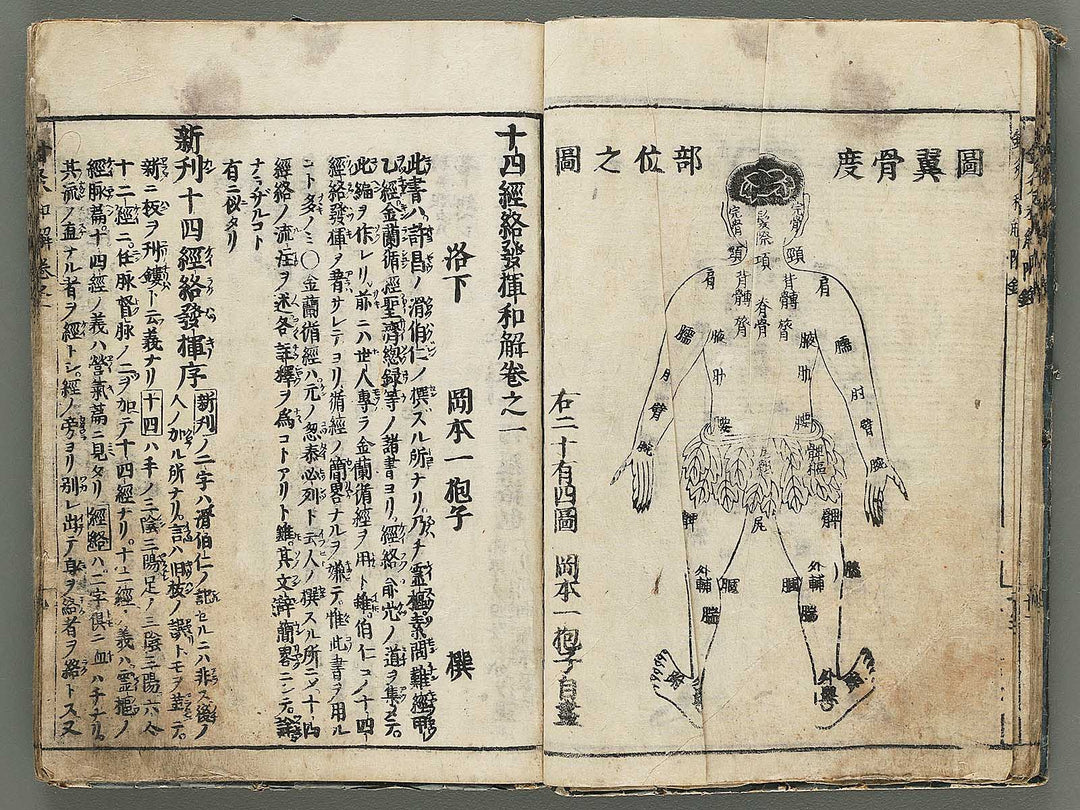 圖翼骨度
部位之圖
髮際
完骨
完骨
項
頸
頸
肩
肩
背
髆
背
髆
脊骨
膂
膂
臑
臑
腋
腋
肋
肋
肘
肘
臂
臂
腕
腕
腰
腰
髀樞
尾
髀
髀
外輔
外輔
膕
膕
腨
腨
右二十有四圖 岡本一抱子自畫
十四經絡發揮和解卷之一
洛下 岡本一抱子 撰
此書ハ許昌ノ滑伯仁ノ撰スル所ナリ乃チ靈樞素問難經甲
乙經金蘭循經聖濟總録等ノ諸書ヨリ經絡俞穴ノ道ヲ集メテ
此編ヲ作レリ前ニハ世人專ラ金蘭循經ヲ用ト雖伯仁コノ十四
經絡發揮ヲ著サレテヨリ循經ノ簡畧ナルヲ嫌テ惟此書ヲ用ル
コト多ノミ〇金蘭循經ハ元ノ忽泰必列ト云人ノ撰スル所ニメ十四
經絡ノ流注ヲ述各註釋ヲ爲コトアリト雖其文辭簡畧ニシテ詳
ナラサルコト
有ニ似タリ
新刊十四經絡發揮序
新刊ノ二字ハ滑伯仁ノ記セルニハ非ス後ノ
人ノ加ル所ナリ言ハ旧板ノ誤トモヲ
新ニ板ヲ刋鏤ト云義ナリ十四ハ手ノ三陰三陽足ノ三陰三陽六合
十二經ニ任脉督脉ノ二ヲ加テ十四經ナリ十二經ノ義ハ靈樞ノ
經脉篇十四經ノ義ハ營氣篇ニ見タリ經絡ハ二字倶ニ血ハチナリ
其流ノ直ナル者ヲ經トシ經ノ旁ヨリ別レ出テ身ヲ絡者ヲ絡トス又